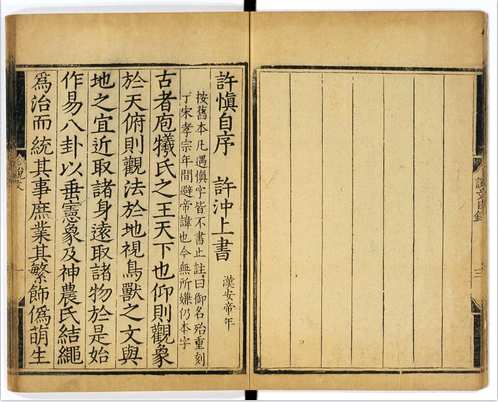 說文目錄
三
許慎自序 許沖上書 漢安帝年
按舊本凡遇慎字皆不書止註曰御名殆重刻
于宋孝宗年間避帝諱也今無所嫌仍本字
古者庖犧氏之王天下也仰則觀象
於天俯則觀法於地視鳥獸之文與
地之宜近取諸身遠取諸物於是始
作易八卦以垂憲象及神農氏結繩
爲治而統其事庶業其繁飾僞萌生